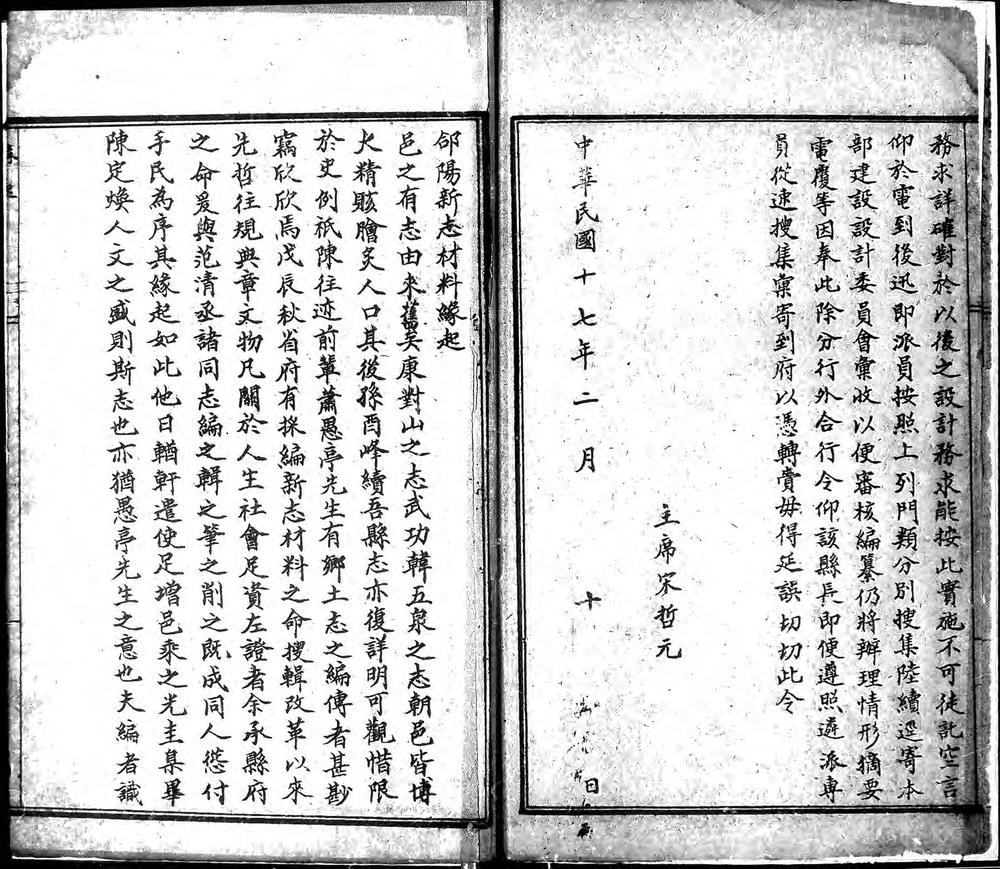 務求詳確對於以後之設計務求能按此實施不可徒託空言
仰於電到後迅即派員按照上列門類分別搜集陸續逕寄本
部建設設計委員會彙收以便審核編纂仍將辦理情形摘要
電覆等因奉此除分行外合行令仰該縣長即便遵照遴派專
員從速搜集彙寄到府以憑轉賫毋得延誤切切此令
主席宋哲元
中華民國十七年二月十日
郃陽新志材料緣起
邑之有志由來舊矣康對山之志武功韓五泉之志朝邑皆博
大精賅膾炙人口其後孫酉峰續吾縣志亦復詳明可觀惜限
於史例祇陳往迹前輩蕭愚亭先生有鄉土志之編傳者甚尠
竊欣欣焉戊辰秋省府有採編新志材料之命搜輯改革以來
先哲往規典章文物凡關於人生社會足資左證者余承縣府
之命爰與范清丞諸同志編之輯之筆之削之既成同人慫付
手民為序其緣起如此他日輶軒遣使足增邑乘之光圭臬畢
陳定煥人文之盛則斯志也亦猶愚亭先生之意也夫編者識